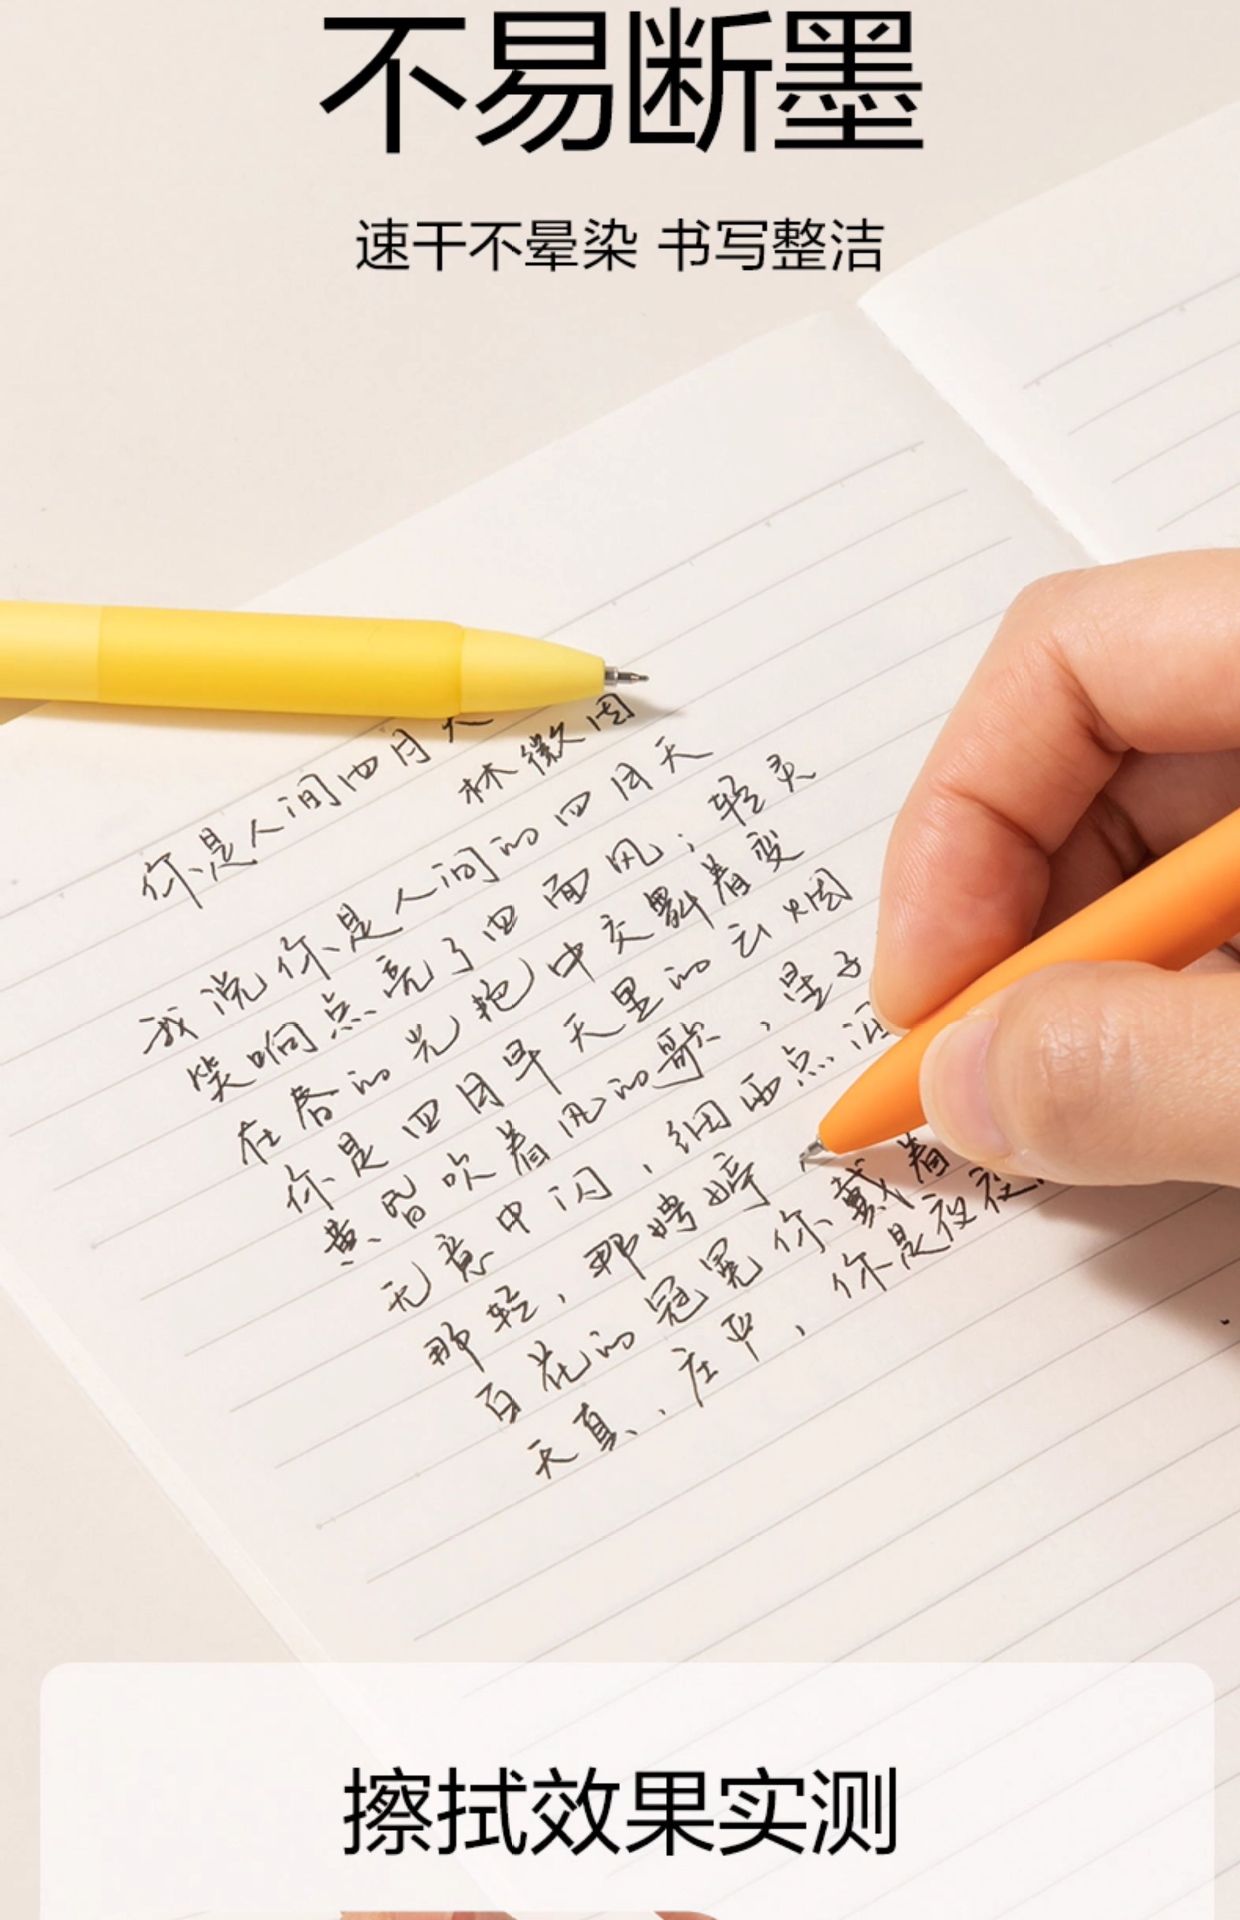 不易断墨
速干不晕染 书写整洁
你是人间四月天
林徽因
我说你是人间的四月天
笑响点亮了四面风；轻灵
在春的光艳中交舞着变
你是四月早天里的云烟
黄昏吹着风的歌，星子
无意中闪，细雨点洒
那轻，那娉婷
百花的冠冕你戴着
天真、庄严，你是夜夜
擦拭效果实测